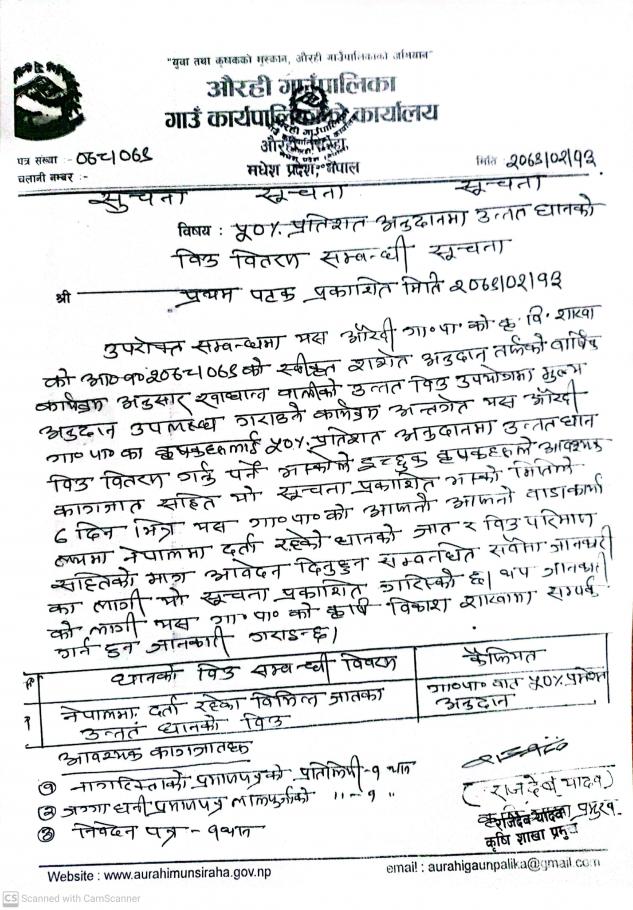 "युवा तथा कृषकको मुस्कान, औरही गाउँपालिकाको अभियान"
औरही गाउँपालिका
गाउँ कार्यपालिकाको कार्यालय
औरही, सिरहा
मधेश प्रदेश, नेपाल
पत्र संख्या :- ०७८।०७९
मिति :- २०७९।०२।१३
चलानी नम्बर :-
सुचना सूचना सूचना
विषय : ५०% प्रतिशत अनुदानमा उन्नत धानको
विउ वितरण सम्बन्धी सूचना
श्री प्रथम पटक प्रकाशित मिति २०७९।०२।१३
उपरोक्त सम्बन्धमा यस औरही गा०पा० को कृषि शाखा
को आ०व० २०७८।०७९ को स्वीकृत शसर्त अनुदान तर्फको वार्षिक
कार्यक्रम अनुसार खाद्यान्न वालीको उन्नत विउ उपयोगमा मुल्य
अनुदान उपलब्ध गराउने कार्यक्रम अन्तर्गत यस औरही
गा०पा० का कृषकहरुलाई ५०% प्रतिशत अनुदानमा उन्नत धान
विउ वितरण गर्नु पर्ने भएकोले इच्छुक कृषकहरुले आवश्यक
कागजात सहित यो सूचना प्रकाशित भएको मितिले
७ दिन भित्र यस गा०पा० को आफ्नो आफ्नो वार्ड कार्या
लयमा नेपालमा दर्ता रहेको धानको जात र विउ परिमाण
सहितको माग आवेदन दिनुहुन सम्बन्धित सवैमा जानकारी
का लागी यो सूचना प्रकाशित गरिएको छ। थप जानकारी
को लागी यस गा०पा० को कृषि विकाश शाखामा सम्पर्क
गर्न हुन जानकारी गराइन्छ।
धानको विउ सम्बन्धी विवरण कैफियत
१ नेपालमा दर्ता रहेका विभिन्न जातका गा०पा० वाट ५०% प्रतिशत
उन्नत धानको विउ अनुदान
आवश्यक कागजातहरु
① नागरिकताको प्रमाणपत्रको प्रतिलिपी - १ थान
② जग्गा धनी प्रमाणपत्र लालपुर्जाको " - १ "
③ निवेदन पत्र - १ थान
(राजदेव यादव)
राजदेव यादव
कृषि शाखा प्रमुख
Website : www.aurahimunsiraha.gov.np
email : aurahigaunpalika@gmail.com
CS Scanned with CamScanner